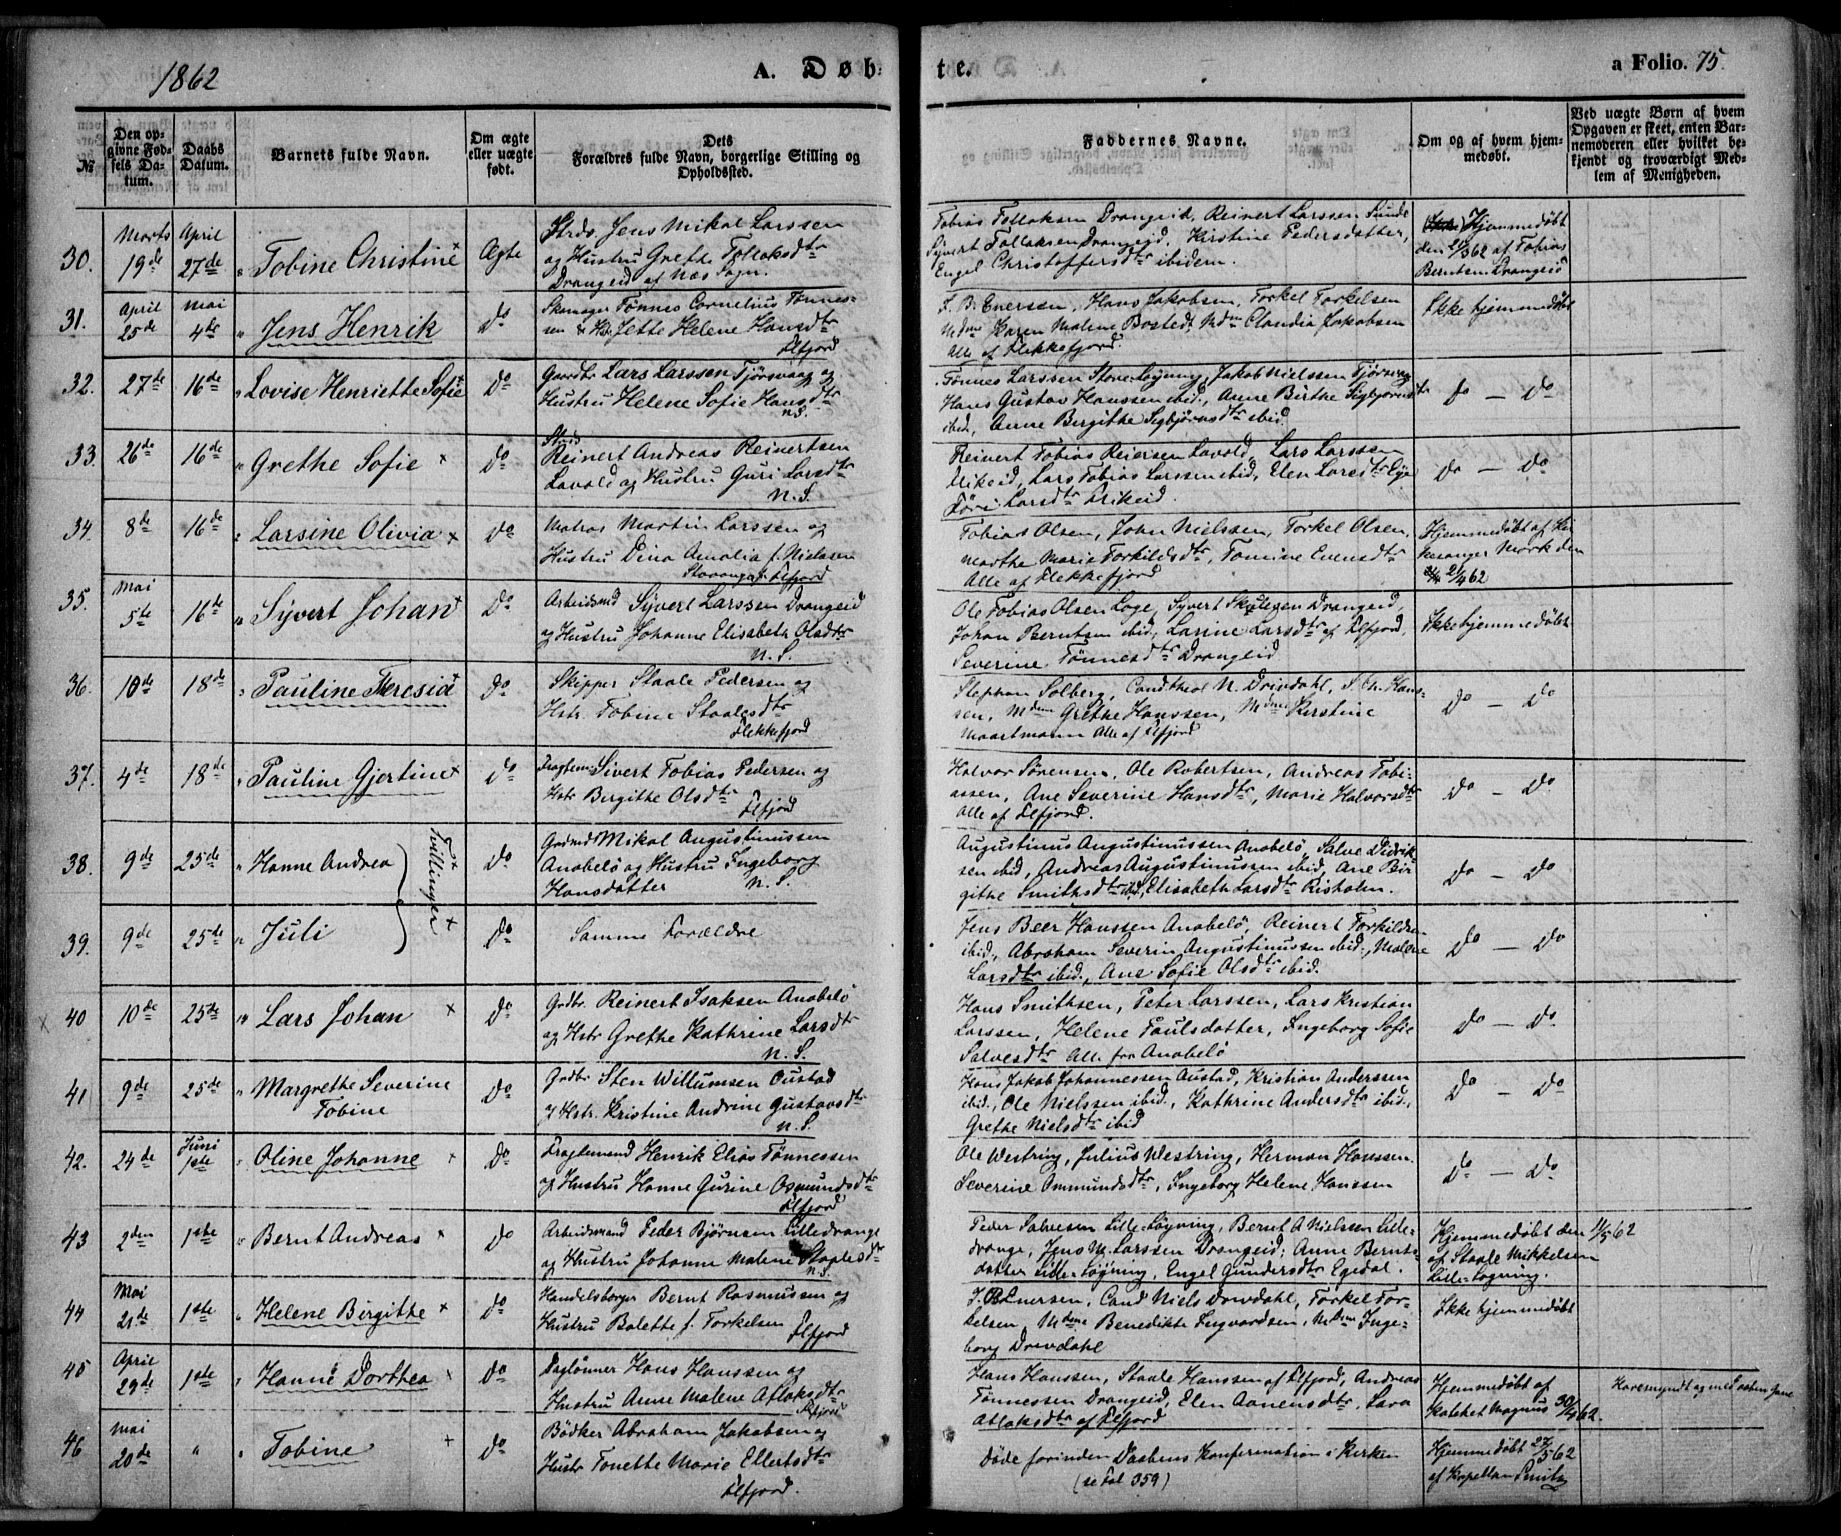 1862
A. Døb-
te.
a Folio. 75.
№
Den op-
givne Fød-
sels Da-
tum.
Daabs
Datum.
Barnets fulde Navn.
Om ægte
eller uægte
født.
Dets
Forældres fulde Navn, borgerlige Stilling og
Opholdssted.
Faddernes Navne.
Om og af hvem hjem-
medøbt.
Ved uægte Børn af hvem
Opgaven er skeet, enten Bar-
nemoderen eller hvilket be-
kjendt og troværdigt Med-
lem af Menigheden.
30.
Marts
19de
April
27de
Tobine Christine
Ægte
Strds. Jens Mikal Larssen
og Hustru Grethe Tollaksdtr
Drangeid af Næs Sogn.
Tobias Tollaksen Drangeid, Reinert Larssen Sunde
Syvert Tollaksen Drangeid, Kirstine Pedersdatter,
Engel Christoffersdtr ibidem.
Hjemmedøbt
den 21/3 62 af Tobias
Berntsen Drangeid
31.
April
25de
Mai
4de
Jens Henrik
do
Skomager Tønnes Cornelius Tønnes-
sen & Hstr Jette Helene Hansdtr
Flfjord
J. B. Enersen, Hans Jakobsen, Torkel Torkelsen
Mdme Karen Malene Bosted, Mdm Claudia Jakobsen
Alle af Flekkefjord.
Ikke hjemmedøbt
32.
27de
16de
Lovise Henriette Sofie
do
Gaardbr Lars Larssen Tjørsvaag og
Hustru Helene Sofie Hansdtr
N.S.
Tønnes Larssen Store Løgning, Jakob Nielssen Tjørsvaag
Hans Gustav Hanssen ibid., Anne Birthe Sigbjørnsdtr
ibid., Anne Birgithe Sigbjørnsdtr ibid.
do — do
33.
26de
16de
Grethe Sofie
do
Strds
Reinert Andreas Reinertsen
Lavold og Hustru Guri Larsdtr
N.S.
Reinert Tobias Reiersen Lavold, Lars Larssen
Eikeid, Lars Tobias Larssen ibid, Elen Larsdtr
Larsdtr Eikeid.
do — do
34.
8de
16de
Larsine Olivia
do
Matros Martin Larssen og
Hustru Dina Amalia f. Nielssen
Stavanger Flfjord
Tobias Olsen, John Nielssen, Torkel Olsen,
Marthe Marie Torkildsdtr, Tomine Evensdtr
Alle af Flekkefjord
Hjemmedøbt af
Mørk den
21/4 62
35.
Mai
5te
16de
Syvert Johan
do
Arbeidsmd Syvert Larssen Drangeid
og Hustru Johanne Elisabeth Olsdtr
N.S.
Ole Tobias Olsen Loge, Syvert Drangeid,
Johan Berntsen ibid, Larine Larsdtr af Flfjord,
Severine Tønnesdtr Drangeid
Ikke hjemmedøbt
36.
10de
18de
Pauline Theresia
do
Skipper Staale Pedersen og
Hstr. Tobine Staalesdtr
Flekkefjord
Stephan Solberg, Cand theol N. Drivdahl, S. Chr. Hans-
sen, Mdm Grethe Hanssen, Mdme Kirstine
Maartmann Alle af Flfjord
do — do
37.
4de
18de
Pauline Gjertine
do
Dragtem. Sivert Tobias Pedersen og
Hstr Birgithe Olsdtr
Flfjord
Halvor Sørensen, Ole Robertsen, Andreas Tobi-
assen, Ane Severine Hansdtr, Marie Halvorsdtr
Alle af Flfjord.
do — do
38.
9de
25de
Hanne Andrea
Tvillinger
do
Grdmd Mikal Augustinussen
Anabelø og Hustru Ingeborg
Hansdatter N.S.
Augustinus Augustinussen Anabelø, Salve Didrik-
sen ibid, Andreas Augustinussen ibid, Ane Bir-
githe Smithsdtr ibid, Elisabeth Larsdtr Risholm.
do — do
39.
9de
25de
Juli
do
Samme Forældre
Jens Beer Hanssen Anabelø, Reinert Torkildsen
ibid., Abraham Severin Augustinussen ibid., Malene
Larsdtr ibid., Ane Sofie Olsdtr ibid.
do — do
40
10de
25de
Lars Johan
do
Grdbr. Reinert Isaksen Anabelø
og Hstr Grethe Kathrine Larsdtr
N.S.
Hans Smithsen, Peter Larssen, Lars Kristian
Larssen, Helene Paulsdatter, Ingeborg Sofie
Salvesdtr Alle fra Anabelø
do — do
41
9de
25de
Margrethe Severine
Tobine
do
Grdbr. Sten Willumsen Oustad
og Hstr. Kristine Andrine Gustavsdtr
N.S.
Hans Jakob Johannessen Austad, Kristian Anderssen
ibid., Ole Nielssen ibid., Kathrine Andersdtr ibid.,
Grethe Nielsdtr ibid
do — do
42.
24de
Juni
1ste
Oline Johanne
do
Dragtemand Henrik Elias Tønnessen
og Hustru Hanne Gurine Osmundsdtr
Flfjord
Ole Westring, Julius Westring, Herman Hanssen,
Severine Ommundsdtr, Ingeborg Helene Hanssen
do — do
43
2den
1ste
Bernt Andreas
do
Arbeidsmand Peder Bjørnsen Lilledrange
og Hustru Johanne Malene Staalesdtr
N.S.
Peder Salvesen Lille-Løgning, Bernt A Nielssen Lille-
drange, Jens M. Larssen Drangeid; Anne Bernts-
datter Lille-Løgning, Engel Gundersdtr Egedal.
Hjemmedøbt den 11/5 62
af Staale Mikkelsen
Lille-Løgning.
44
Mai
21de
1ste
Helene Birgithe
do
Handelsborger Bernt Rasmussen og
Hustru Bolette f. Torkelsen
Flfjord
J. B. Enersen, Cand Niels Drivdahl, Torkel Tor-
kelsen, Mdme Benedikte Ingvardsen, Mdm Inge-
borg Drivdahl
Ikke hjemmedøbt
45
April
29de
1ste
Hanne Dorthea
do
Daglønner Hans Hanssen og
Hustru Anne Malene Atlaksdtr
Flfjord
Hans Hanssen, Staale Hanssen af Flfjord, Andreas
Tønnessen Drangeid, Elen Aanensdtr, Sara
Atlaksdtr af Flfjord
Hjemmedøbt af
Katehet Magnus 30/4 62.
46
Mai
20de
"
Tobine
do
Bødker Abraham Jakobsen og
Hustr Tonette Marie Ellertsdtr
Flfjord.
Døde forinden Daabens Konfirmation i Kirken
(se Fol 359)
Hjemmedøbt 27/5 62
af Kapellan Smith